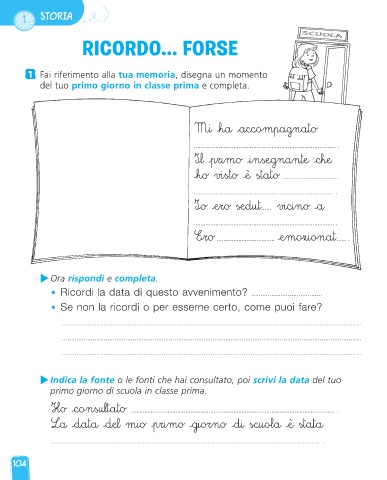 STORIA
SCUOLA
RICORDO... FORSE
1 Fai riferimento alla tua memoria, disegna un momento
del tuo primo giorno in classe prima e completa.
Mi ha accompagnato
Il primo insegnante che
ho visto è stato
Io ero sedut.... vicino a
Ero emozionat.....
Ora rispondi e completa.
• Ricordi la data di questo avvenimento?
• Se non la ricordi o per esserne certo, come puoi fare?
Indica la fonte o le fonti che hai consultato, poi scrivi la data del tuo
primo giorno di scuola in classe prima.
Ho consultato .
La data del mio primo giorno di scuola è stata
.
104